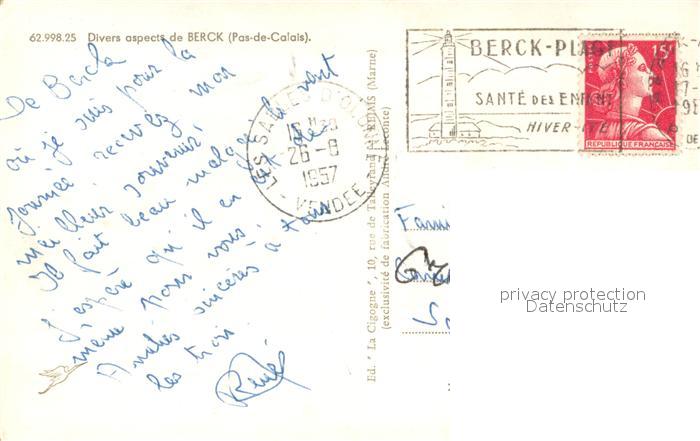 62.998.25 Divers aspects de BERCK (Pas-de-Calais).
De Berck
où je suis pour la
journée recevez mon
meilleur souvenir.
Il fait beau malgré le vent
j'espère qu'il en est de
même pour vous.
Amitiés sincères à tous
les trois
René
LES SABLES D'OLONNE
26-8
1957
VENDEE
BERCK-PLAGE
SANTÉ DES ENFANTS
HIVER-ETE
POSTES
15F
REPUBLIQUE FRANÇAISE
Ed. "La Cigogne", 10, rue de Talleyrand - REIMS (Marne)
(exclusivité de fabrication André Leconte)
Fami
privacy protection
Datenschutz